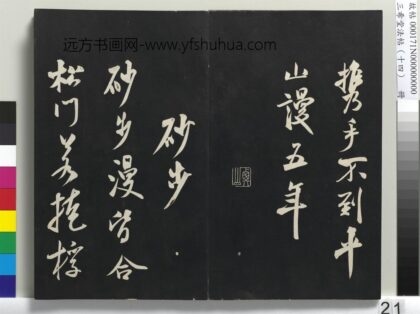 远方书画网-www.yfshuhua.com
故帖 000171N000000000
三希堂法帖（十四） 冊
攜手不到平
山謾五年
砂步
砂步漫皆合
松門若掩桴
21